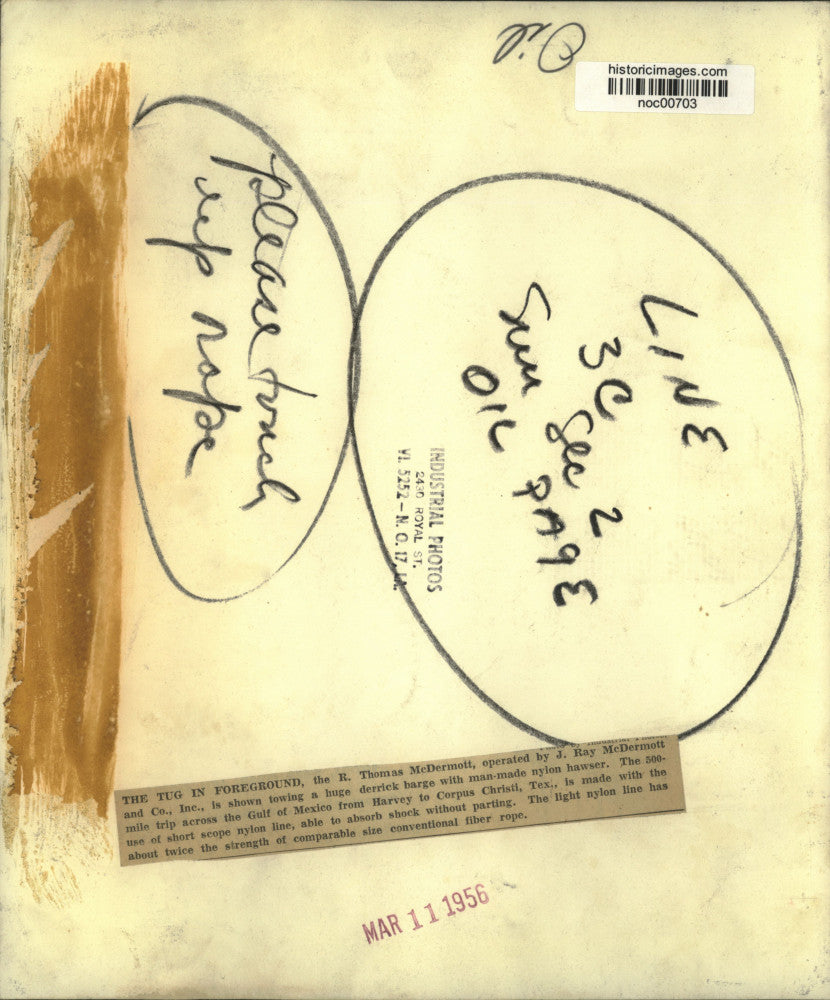 Oil
historicimages.com
noc00703
please touch
up rope
LINE
3C
Sun Sec 2
OIL PAGE
INDUSTRIAL PHOTOS
2430 ROYAL ST.
VI. 5252 — N. O. 17, LA.
THE TUG IN FOREGROUND, the R. Thomas McDermott, operated by J. Ray McDermott
and Co., Inc., is shown towing a huge derrick barge with man-made nylon hawser. The 500-
mile trip across the Gulf of Mexico from Harvey to Corpus Christi, Tex., is made with the
use of short scope nylon line, able to absorb shock without parting. The light nylon line has
about twice the strength of comparable size conventional fiber rope.
MAR 11 1956